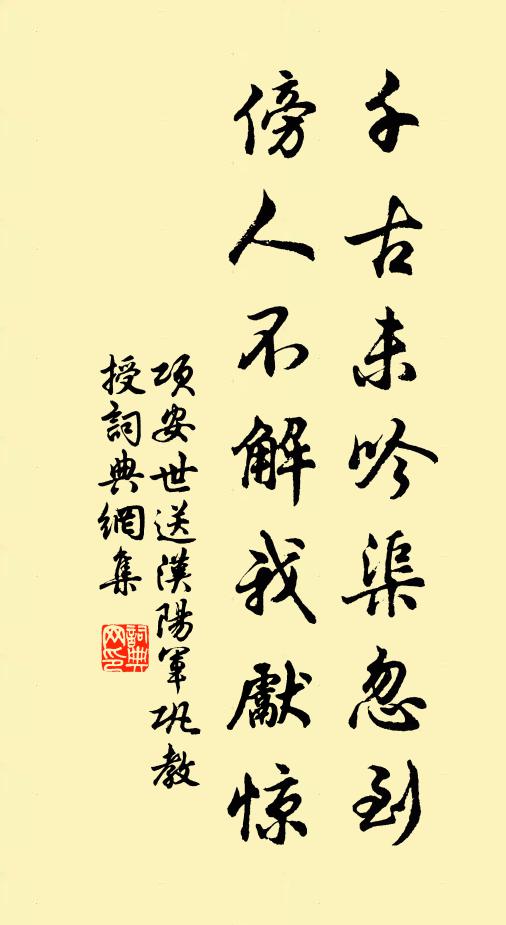 千古未吟渠忽到
傍人不解我獻惊
項安世送漢陽軍巩教
授詞典網集
詞典網印